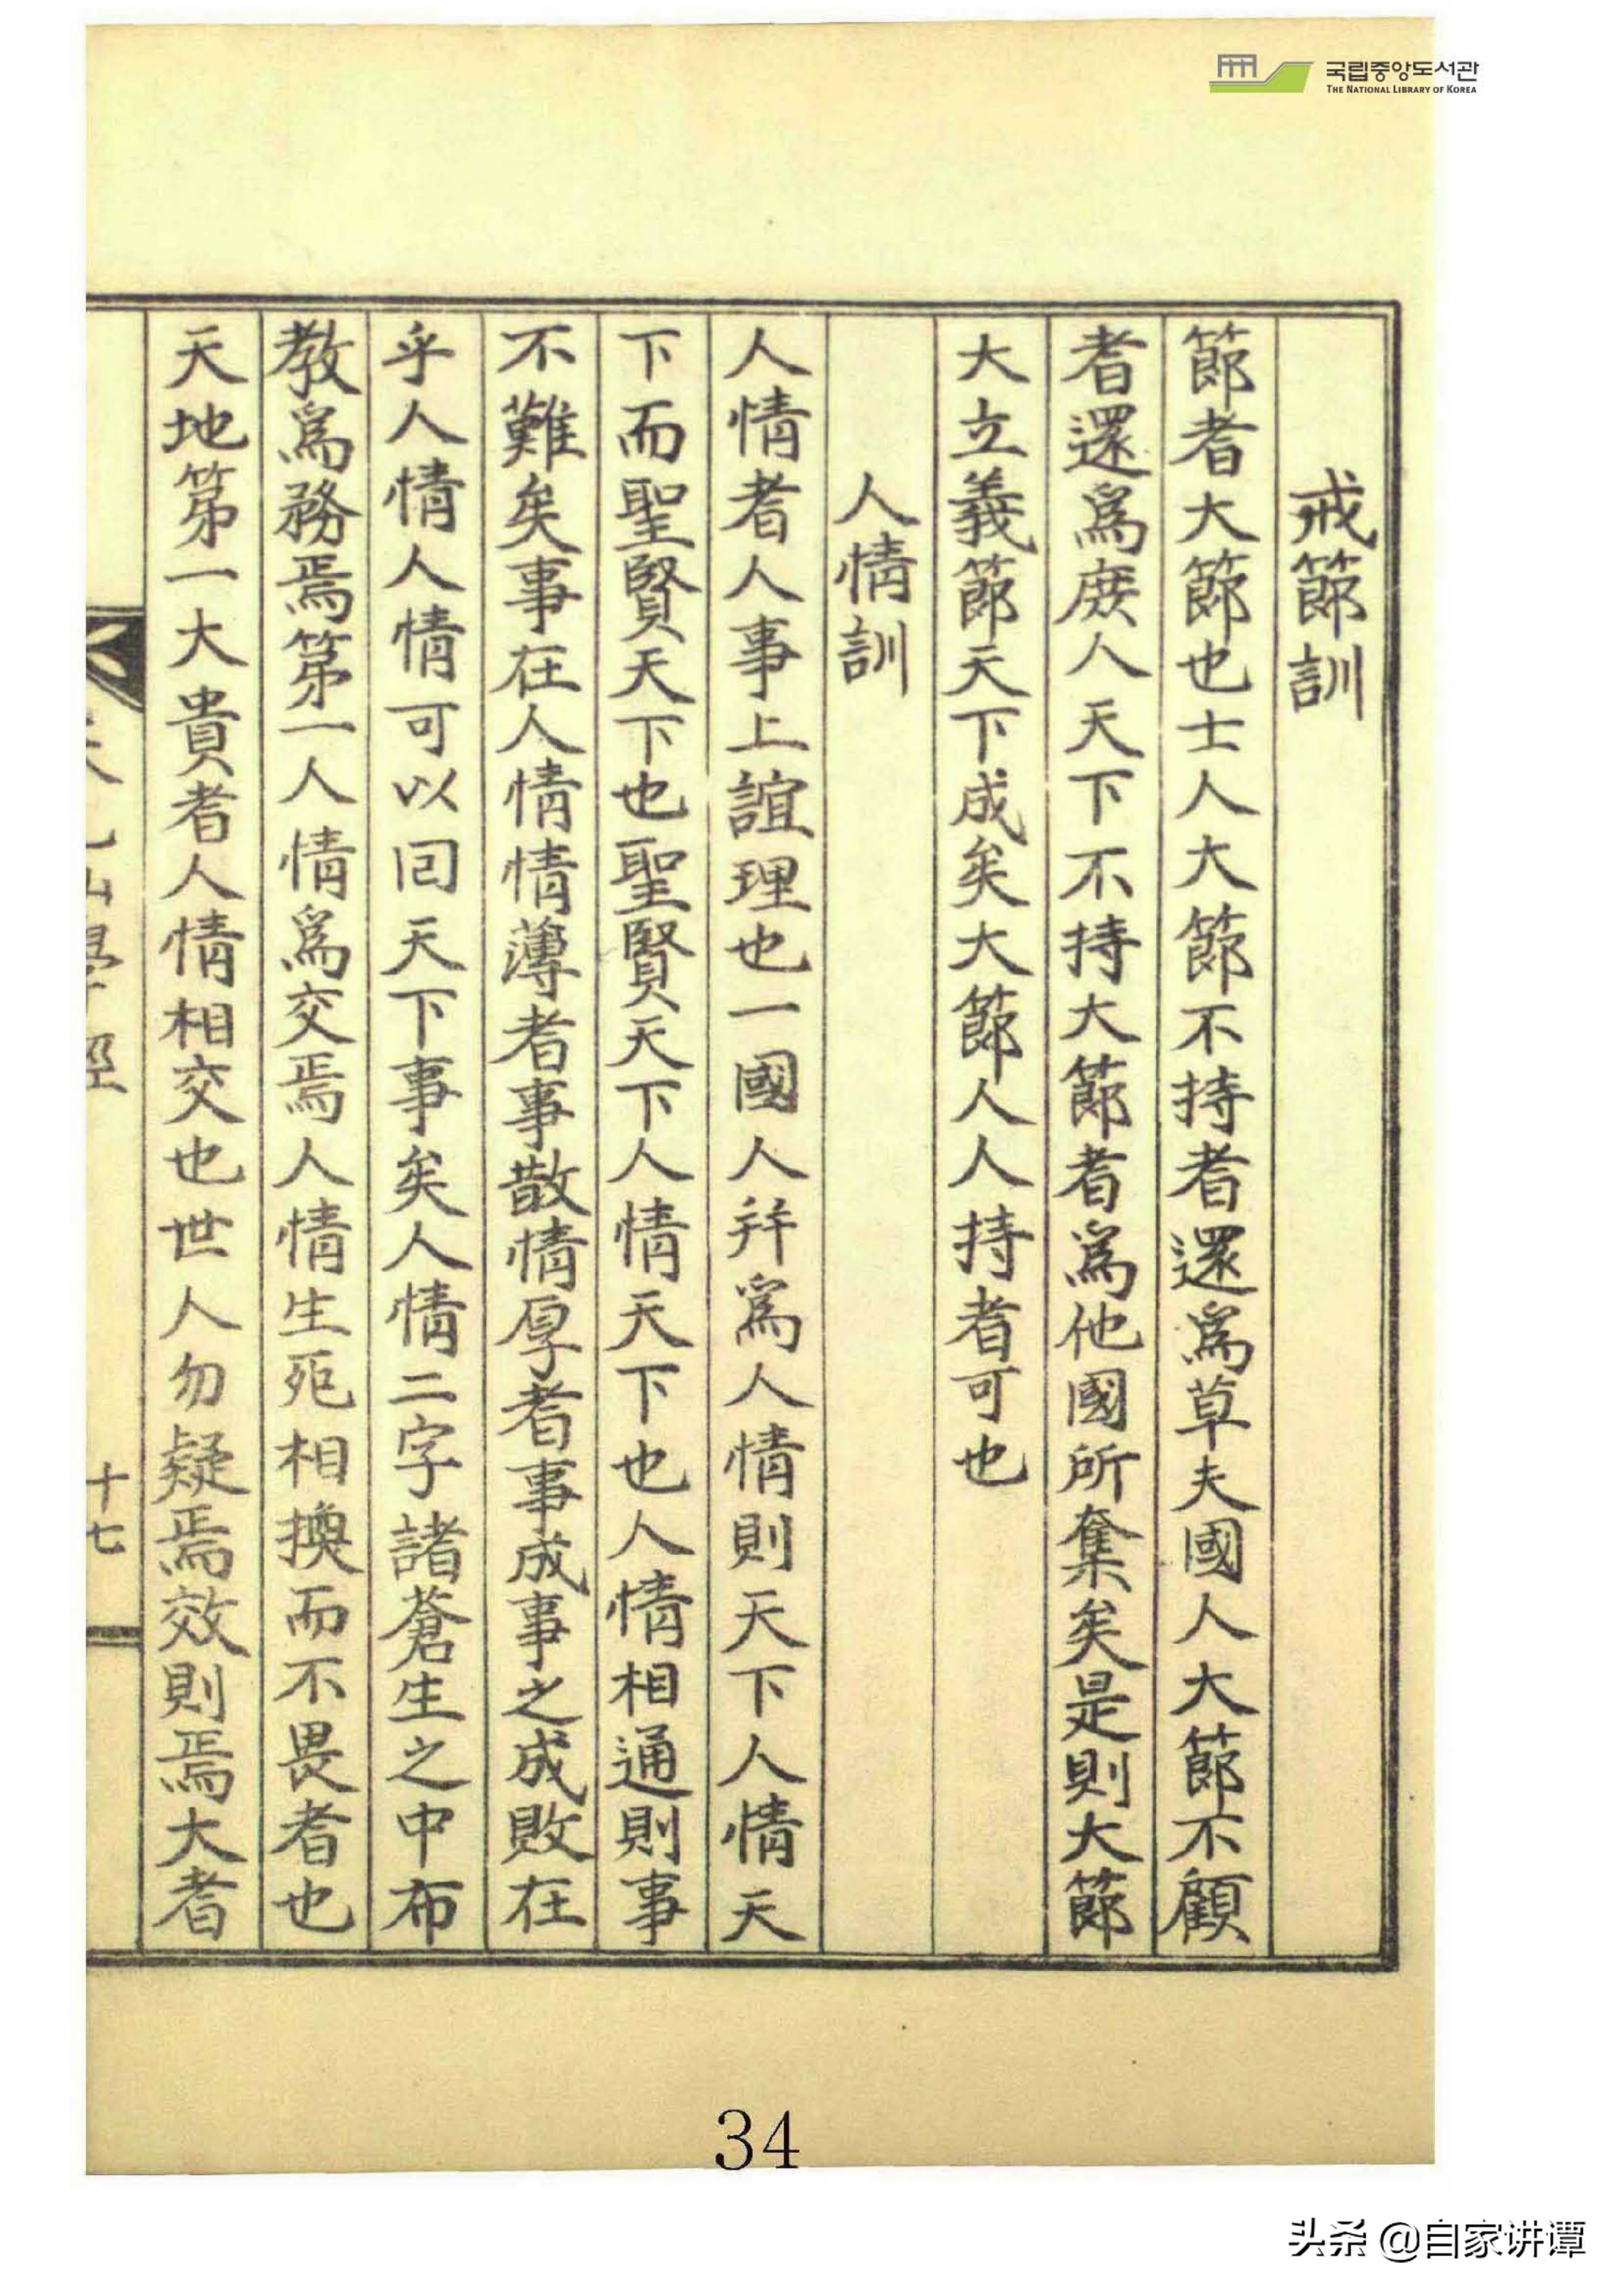 국립중앙도서관
THE NATIONAL LIBRARY OF KOREA
戒節訓
節者大節也士人大節不持者還爲草夫國人大節不顧
者還爲庶人天下不持大節者爲他國所奪矣是則大節
大立義節天下成矣大節人人持者可也
人情訓
人情者人事上誼理也一國人并爲人情則天下人情天
下而聖賢天下也聖賢天下人情天下也人情相通則事
不難矣事在人情情薄者事散情厚者事成事之成敗在
乎人情人情可以回天下事矣人情二字諸蒼生之中布
教爲務焉第一人情爲交焉人情生死相換而不畏者也
天地第一大貴者人情相交也世人勿疑焉效則焉大者
十七
34
头条 @自家讲谭